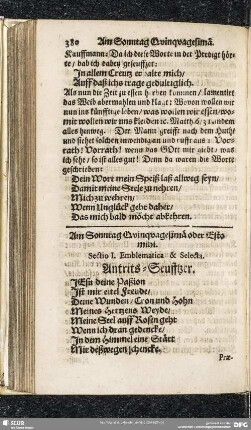 380 Am Sonntag Qvinqvagesimä.
Kauffmann: Da ich diese Worte in der Predigt hör-
te/ hab ich dabey geseuffzet:
In allem Creutz erhalte mich/
Auff daß ichs trage gedultiglich.
Als nun die Zeit zu essen herben kommen/ lamentiret
das Weib abermahlen und klagt: Wovon wollen wir
nun ins künfftige leben/ was wollen wir essen/ wo-
mit wollen wir uns kleiden ꝛc. Matth. 6.
alles hinweg. Der Mann greifft nach dem Huth/
und siehet solchen inwendig an und rufft aus: Vor-
rath! Vorrath! wenn das GOtt mir giebt/ was
ich sehe/ so ist alles gut! Denn da waren die Worte
geschrieben:
Dein Wort mein Speiß laß allweg seyn/
Damit meine Seele zu nehren/
Mich zu wehren/
Wenn Unglück gehe daher/
Das mich bald möcht abkehren.
Am Sonntag Qvinqvagesimä oder Esto
mihi.
Sectio I. Emblematica & Selecta.
Antrits-Seufftzer.
JEsu deine Passion
Ist mir eitel Freude/
Deine Wunden/ Cron und Hohn
Meines Hertzens Weyde/
Meine Seel auff Rosen geht
Wenn ich dran gedencke/
In dem Himmel eine Stätt
Mir deßwegen schencke.
Præ-
SLUB